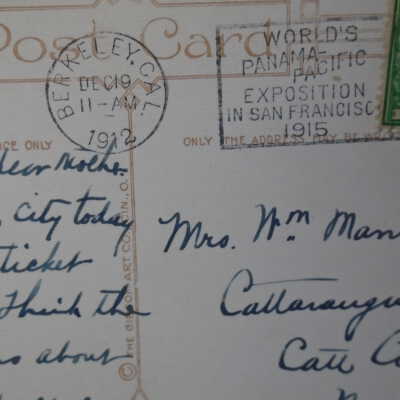 Post Card
BERKELEY, CAL.
DEC 19
11-AM
1912
WORLD'S
PANAMA-
PACIFIC
EXPOSITION
IN SAN FRANCISC
1915
CE ONLY
ONLY THE ADDRESS MAY BE
dear Mother.
City today
ticket
Think the
about
© THE ART CO.
Mrs. Wm Man
Cattaraugu
Catt Co